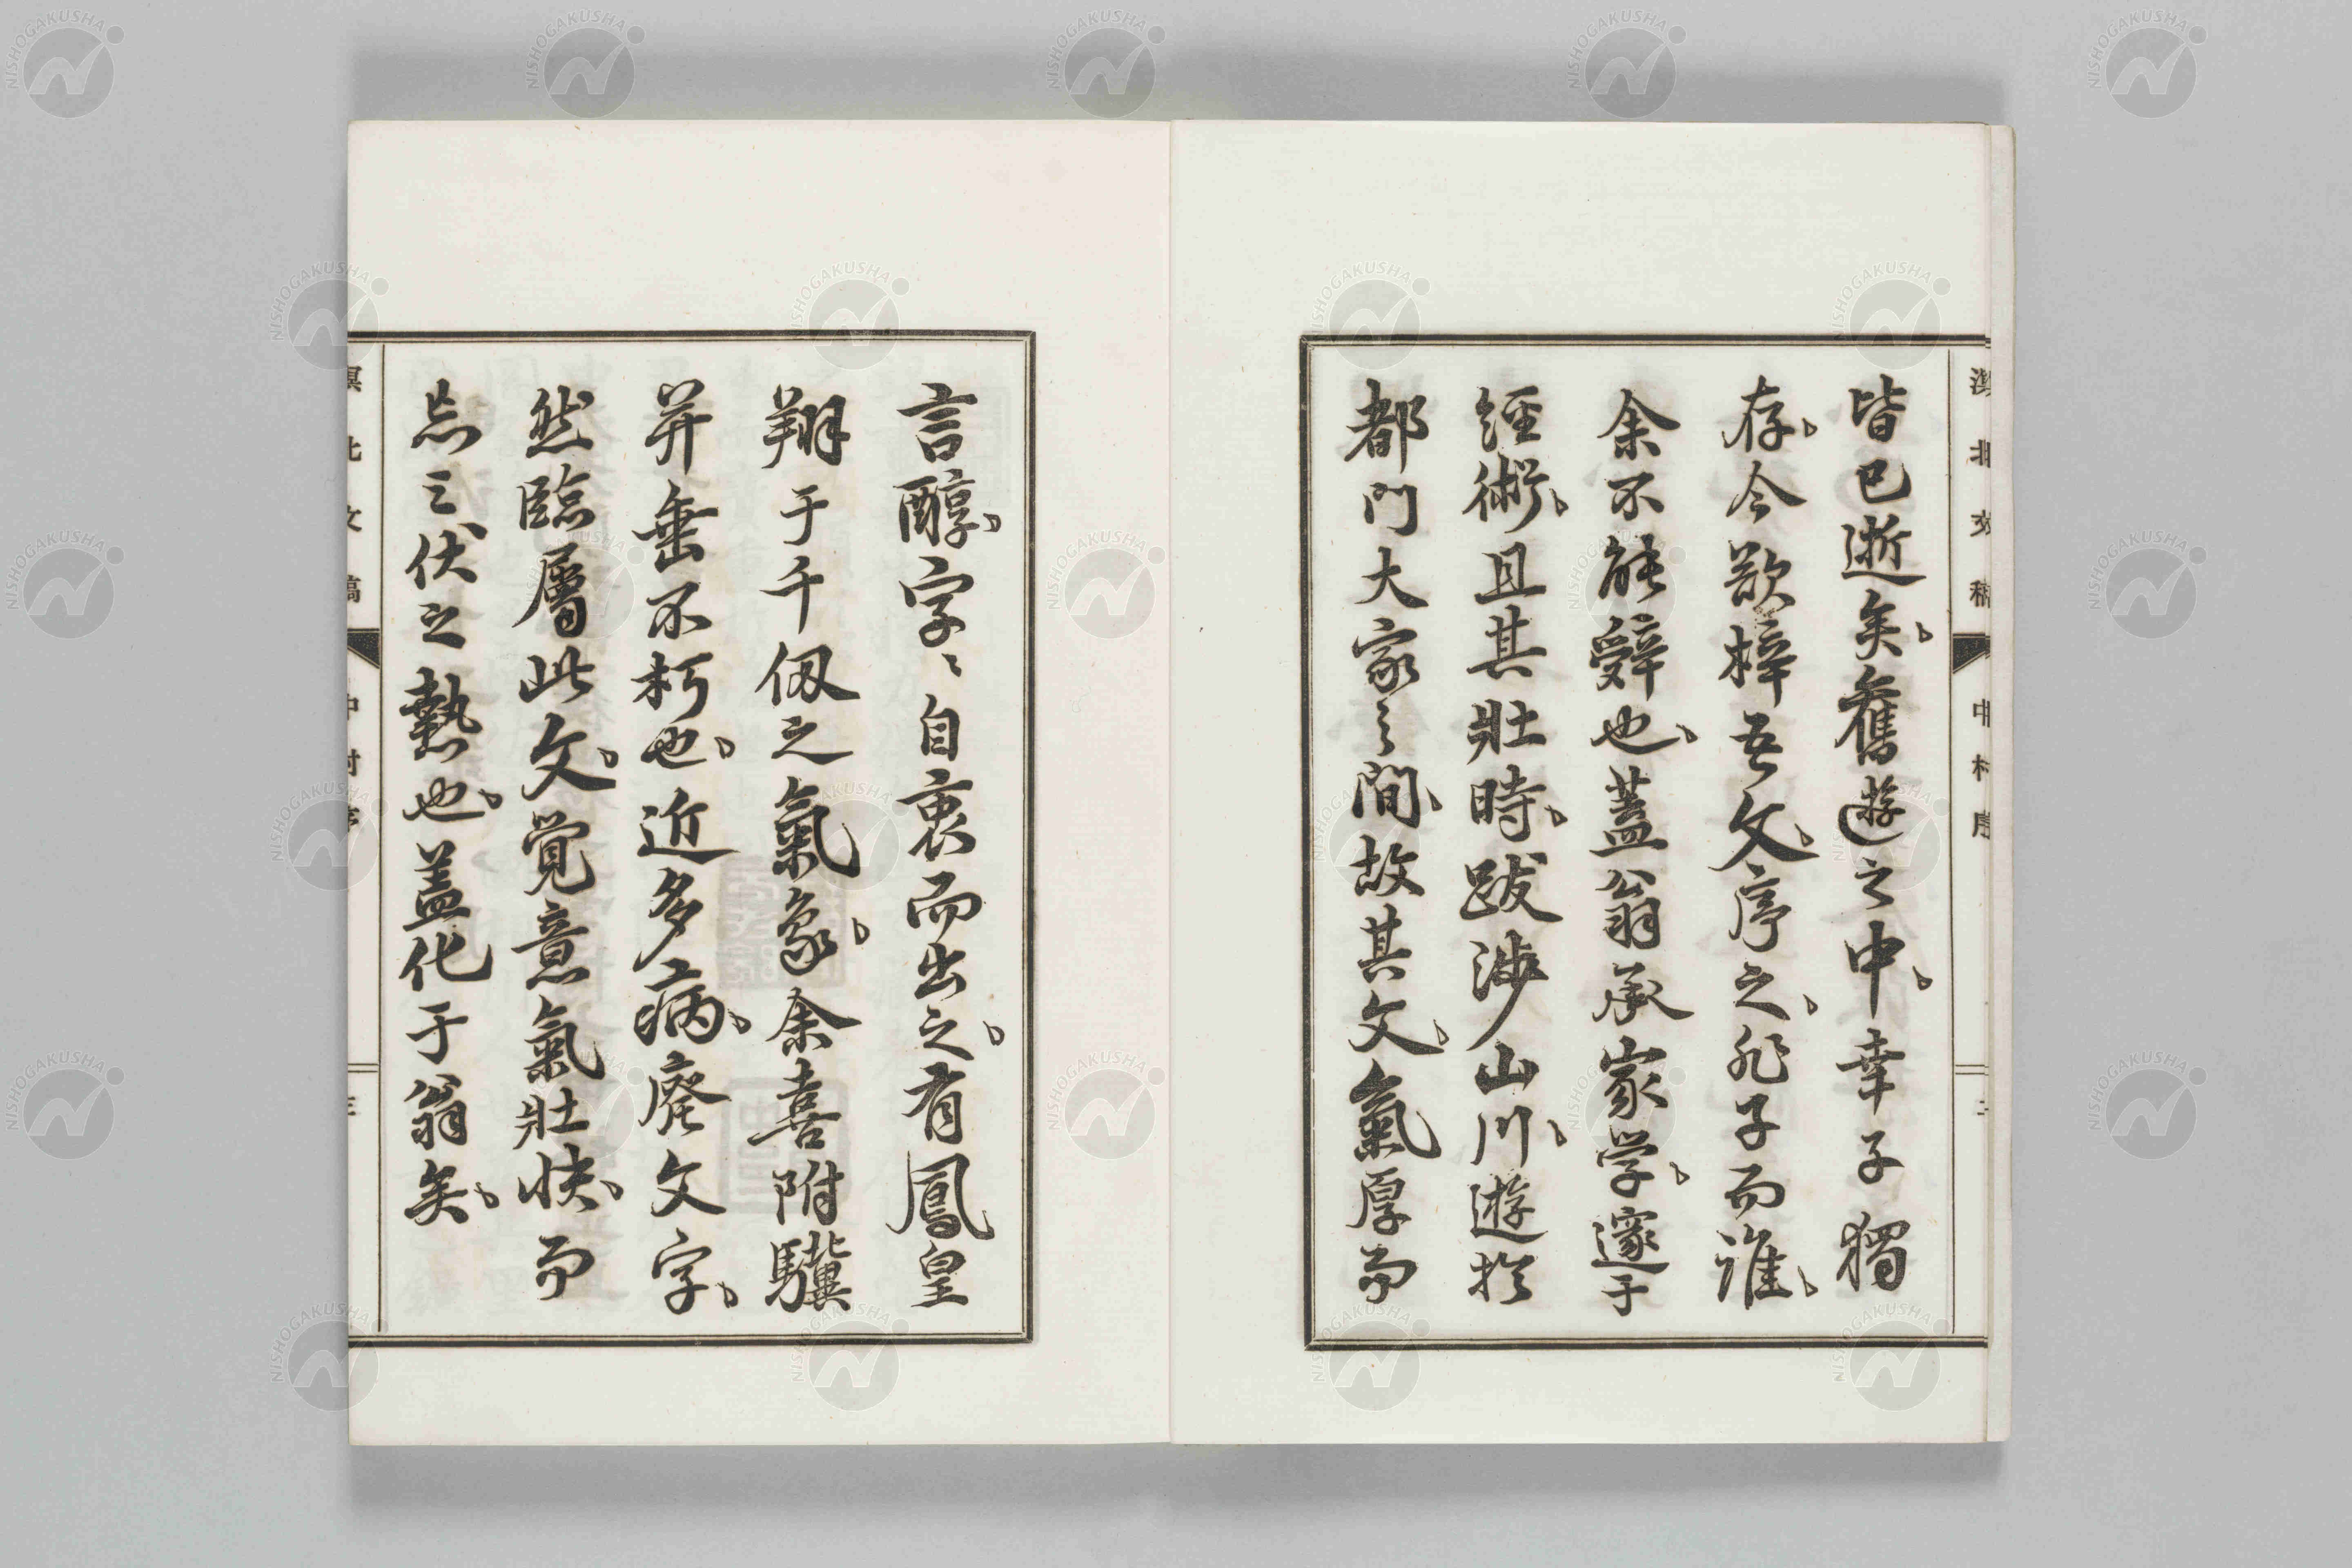 皆已逝矣、舊遊之中、幸子獨
存、今欲梓吾文、序之、非子而誰、
余不能辭也、蓋翁承家学、邃于
經術、且其壯時、跋渉山川、遊於
都門大家之間、故其文、氣厚而
言醇、字〻自衷而出之、有鳳皇
翔于千仭之氣象、余喜附驥
并垂不朽也、近多病、廢文字、
然臨属此文、覚意氣壯快、而
忘三伏之熱也、蓋化于翁矣、
溟北文稿
中村序
NISHOGAKUSHA